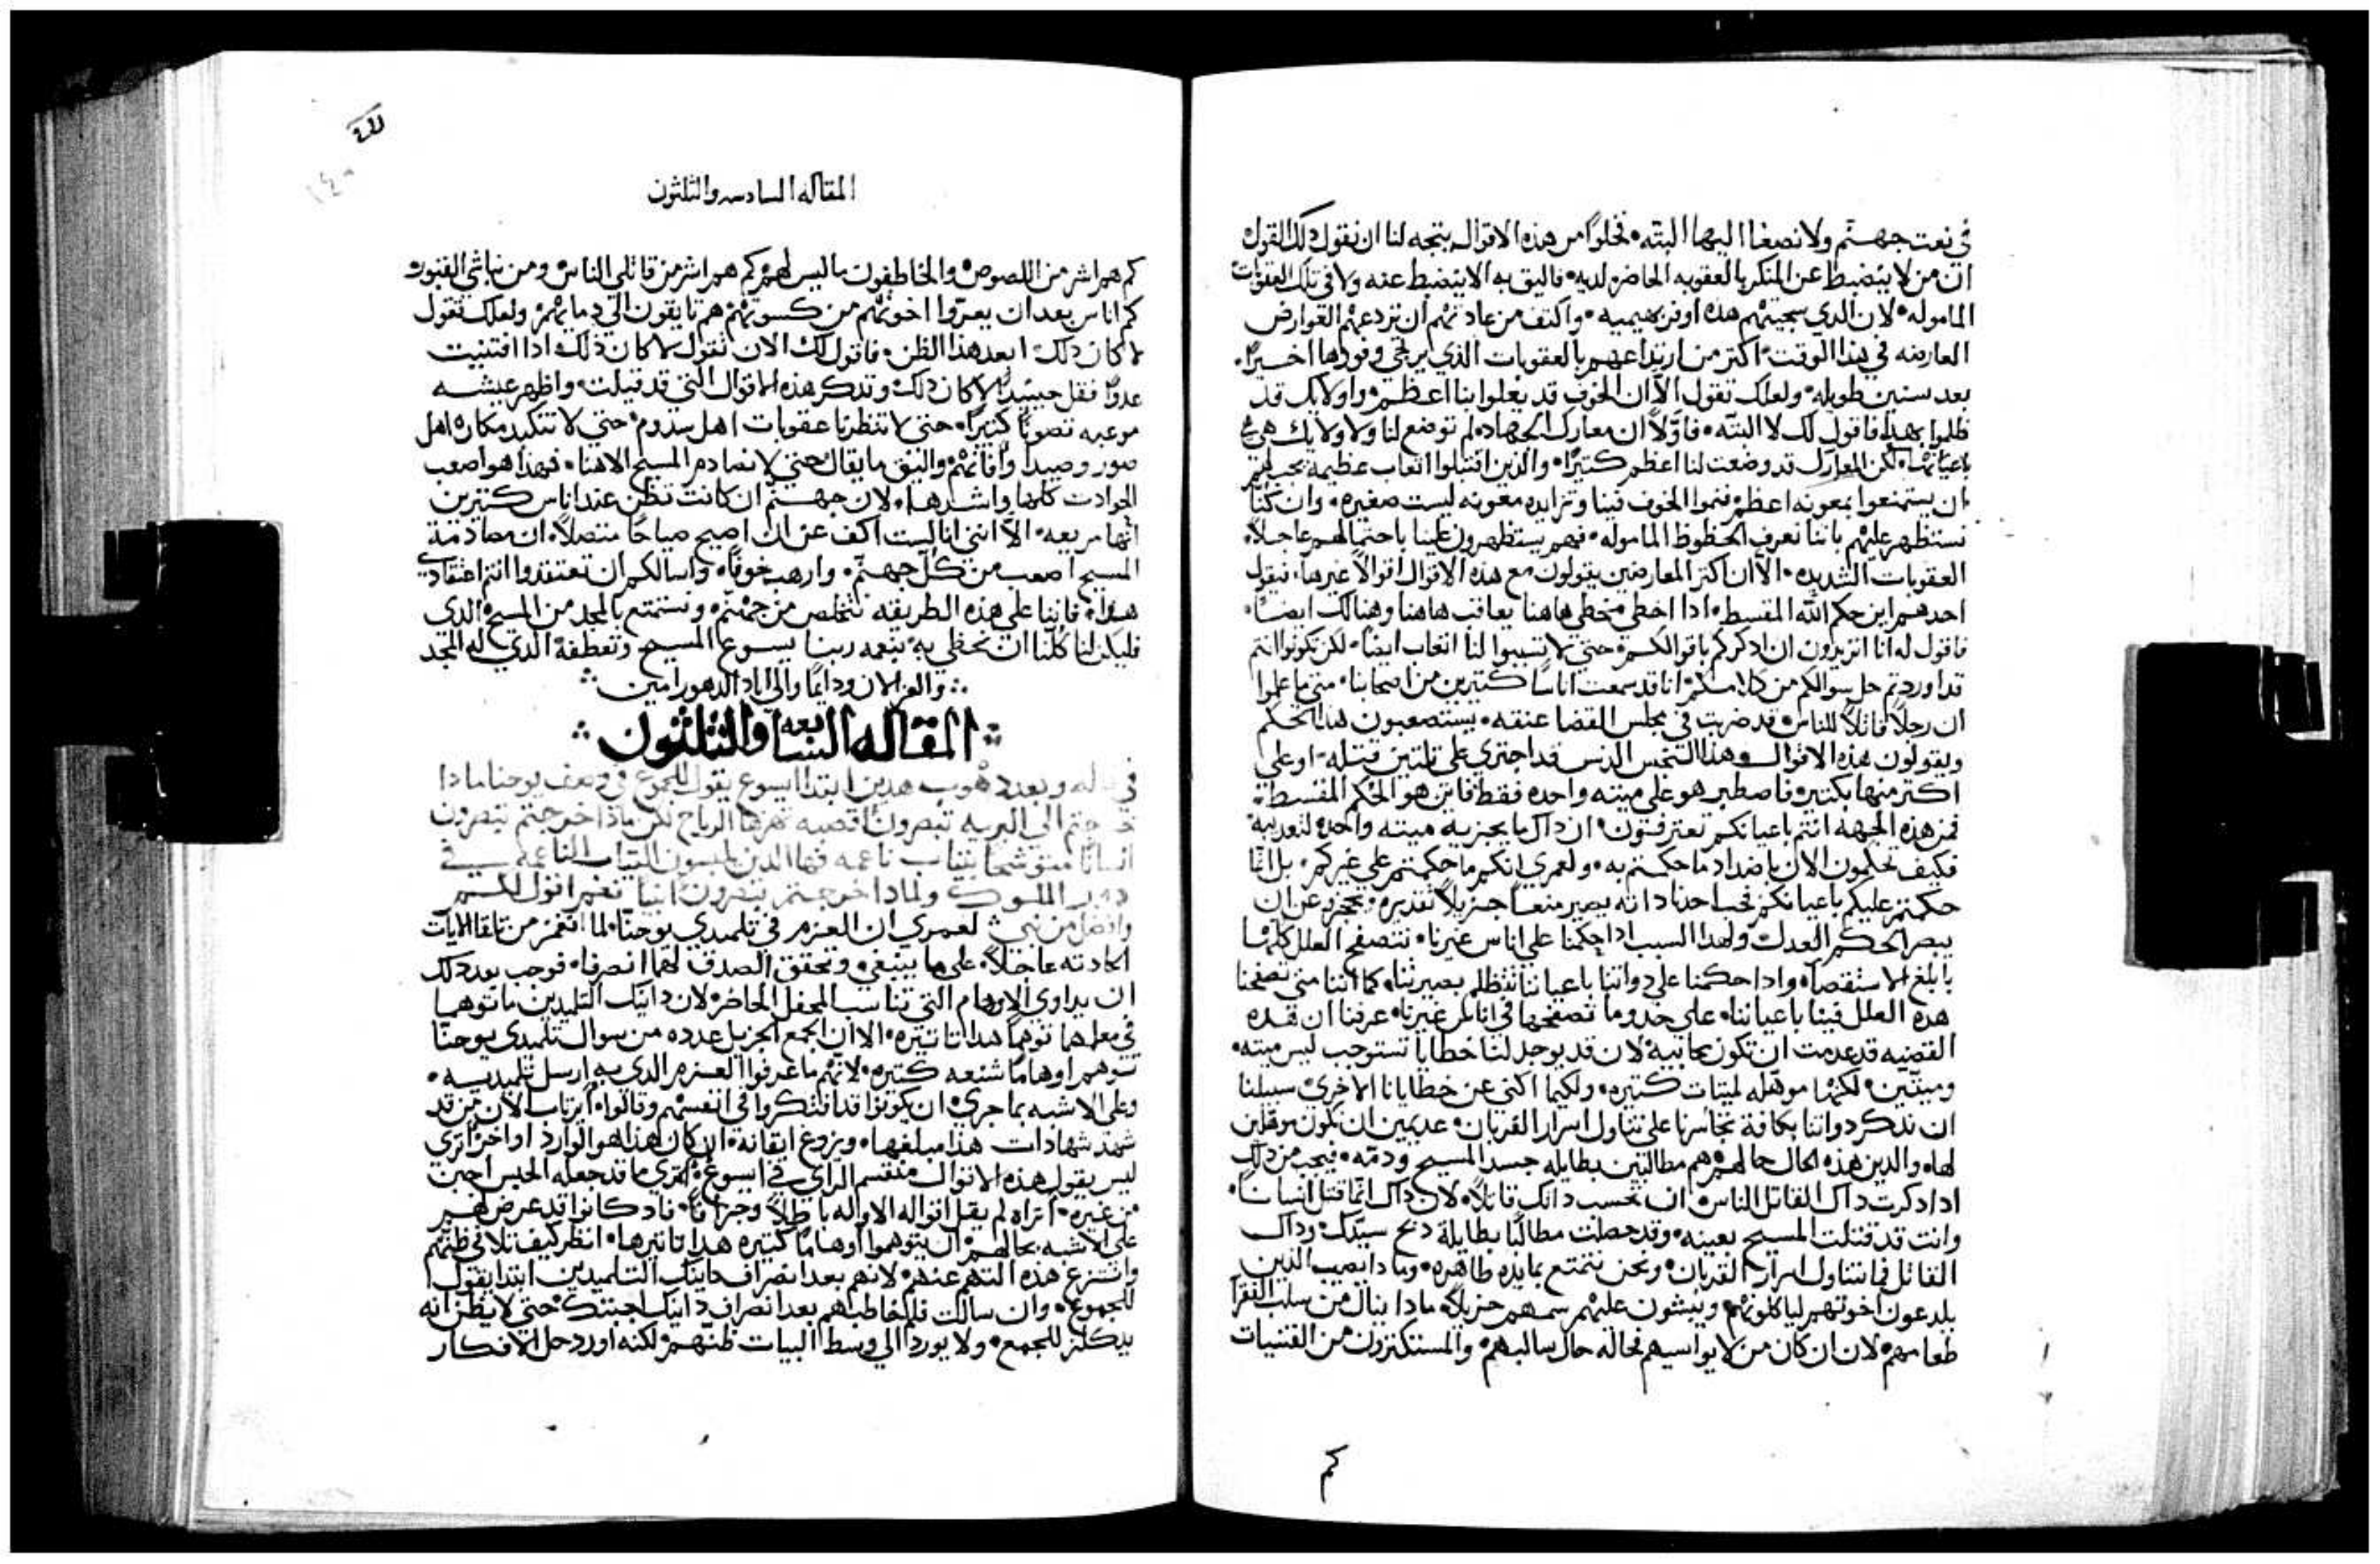 في نعت جهنم ولا نصغا اليها البته فخلوا من هذه الاقوال يتجه لنا ان نقول ذلك القول
ان من لا ينضبط عن المنكر بالعقوبه الحاضره لديه فاليق به الا ينضبط عنه ولا في تلك العقوبات
الماموله لان الدي سجيتهم هده اوفر بهيميه واكتف من عادتهم ان تردعهم القوارض
العارضه في هذا الوقت اكتر من ارتداعهم بالعقوبات الذي يرتجي وفودها اخيرًا
بعد سنين طويله ولعلك تقول الا ان الخوف قد يعلوا بنا اعظم واولايك قد
ظلموا بهذا فاقول لك لا البته فاولًا ان معارك الجهاد لم توضع لنا ولاولايك هي هي
باعيانها لكن المعارك قد وضعت لنا اعظم كتيرًا والذين اقتبلوا اتعاب عظيمه يجب لهم
ان يستمتعوا بمعونه اعظم فنموا الخوف فينا وتزايده معونه ليست صغيره وان كنا
نستظهر عليهم باننا نعرف الحظوظ الماموله فهم يستظهرون علينا باحتمالهم عاجلًا
العقوبات الشديده الا ان اكتر المعارضين يقولون مع هده الاقوال اقوالًا غيرها فيقول
احدهم اين حكم الله المقسط ادا اخطى مخطي هاهنا يعاقب هاهنا وهنالك ايضًا
فاقول له انا اتريدون ان ادكركم باقوالكم حتي لا تسببوا لنا اتعاب ايضًا لكن تكونوا انتم
قد اوردتم حل سوالكم من كلامكم انا قد سمعت اناسًا كتيرين من اصحابنا متي ما علموا
ان رجلًا قاتلًا للناس قد ضربت في مجلس القضا عنقه يستصعبون هدا الحكم
ويقولون هذه الاقوال وهذا النجس الدنس قد اجتري على تلتين قتله او على
اكتر منها بكتير فاصطبر هو على ميته واحده فقط فاين هو الحكم المقسط
فمن هذه الجهه انتم باعيانكم تعترفون ان داك ما يجزيه ميته واحده لتعديبه
فكيف تحكمون الان باضداد ما حكمتم به ولعمري انكم ما حكمتم علي غيركم بل انما
حكمتم عليكم باعيانكم فحب احدنا داته يصير منعًا جزيلًا تقديره ويحجزه عن ان
يبصر الحكم العدل ولهدا السبب ادا حكمنا علي اناس غيرنا نتصفح العلل كلها
بابلغ الاستقصا وادا حكمنا على دواتنا باعياننا تظلم بصيرتنا كما اننا متي تصفحنا
هده العلل فينا باعياننا على حدو ما نصفحها في اناس غيرنا عرفنا ان هذه
القضيه قد عدمت ان تكون محابيه لان قد يوجد لنا خطايا تستوجب ليس ميته
وميتين لكنها موهله لميتات كتيره ولكيما اكني عن خطايانا الاخري سبيلنا
ان ندكر دواتنا بكافة تجاسرنا على تناول اسرار القربان عديمين ان نكون موهلين
لها والدين هذه الحال حالهم هم مطالبين بطايله جسد المسيح ودمه فيجب من ذلك
ادا دكرت داك القاتل الناس ان تحسب داتك قاتلًا لان داك انما قتل انسانًا
وانت قد قتلت المسيح بعينه وقد حصلت مطالبًا بطايلة دبح سيدك وداك
القاتل فما تناول اسرار القربان ونحن نتمتع بمايده طاهره وماذا يصيب الذين
يلدعون اخوتهم لياكلونهم وينبتون عليهم سمهم جزيلًا مادا ينال من سلب الفقرا
طعامهم لان ان كان من لا يواسيهم فحاله حال سالبهم والمستكترون من القنيات
كم
المقاله السادسه والتلتون
كم هم اشر من اللصوص والخاطفون ما ليس لهم كم هم اشر من قاتلي الناس ومن نباشي القبور
كم اناس بعد ان يعروا اخوتهم من كسوتهم هم تايقون الي دمايهم ولعلك تقول
لا كان دلك ابعد هذا الظن فاقول لك الان نقول لا كان ذلك ادا اقتنيت
عدوًا فقل حينيد لا كان دلك وتدكر هذه الاقوال التي قد قيلت واظهر عيشه
موعبه تصونًا كتيرًا حتي لا تنتظرنا عقوبات اهل سدوم حتي لا نتكبد مكاره اهل
صور وصيدا وافاتهم واليق ما يقال حتي لا نصادم المسيح الاهنا فهذا هو اصعب
الحوادت كلها واشدها لان جهنم ان كانت تظن عند اناس كتيرين
انها مريعه الا انني انا لست اكف عن ان اصيح صياحًا متصلًا ان مصادمة
المسيح اصعب من كل جهنم وارهب خوفًا واسالكم ان تعتقدوا انتم اعتقادي
هدا فاننا على هذه الطريقه نتخلص من جهنم ونستمتع بالمجد من المسيح الدي
فليكن لنا كلنا ان نحظي به بنعمه ربنا يسوع المسيح وتعطفه الدي له المجد
والعز الان ودايمًا والى اباد الدهور امين
المقاله السابعه والتلتون
في قوله وبعد دهوب هدين ابتدا ايسوع يقول للجموع في وصف يوحنا مادا
خرجتم الي البريه تبصرون اقصبه تهزها الرياح لكن ماذا خرجتم تبصرون
انسانًا متوشحًا بتياب ناعمه فها الدين يلبسون التياب الناعمه في
دور الملوك ولمادا خرجتم تبصرون انبيا نعم اقول لكم
وافضل من نبي لعمري ان العزم في تلميدي يوحنا لما انهم من تلقا الايات
الحادته عاجلًا على ما ينبغي وتحقق الصدق لهما انصرفا فوجب بعد دلك
ان يداوي الاوهام التي تناسب المحفل الحاضر لان دانيك التلميدين ما توهما
في معلمهما توهمًا هدا تاتيره الا ان الجمع الجزيل عدده من سوال تلميدي يوحنا
توهم اوهامًا شنعه كتيره لانهم ما عرفوا العزم الدي به ارسل تلميديه
وعلى الاشبه بما جري ان يكونوا قد افتكروا في انفسهم وقالوا ايرتاب الان من قد
شهد شهادات هذا مبلغها ويزوغ ايقانه ان كان هذا هو الوارد او اخر اتري
ليس يقول هذه الاقوال منقسم الراي في ايسوع اتري ما قد جعله الحبس اجبن
من غيره اتراه لم يقل اقواله الاوله باطلًا وجزافًا فاد كانوا قد عرض لهم
على الاشبه بحالهم ان يتوهموا اوهامًا كتيره هدا تاتيرها انظر كيف تلافي ظنهم
وانتزع هذه التهم عنهم لانهم بعد انصراف دانيك التلميدين ابتدا يقول
للجموع وان سالت فلم خاطبهم بعد انصراف دانيك اجبتك حتي لا يظن انه
يتكلم للجمع ولا يورد الي وسط البيات ظنهم لكنه اورد حل الافكار